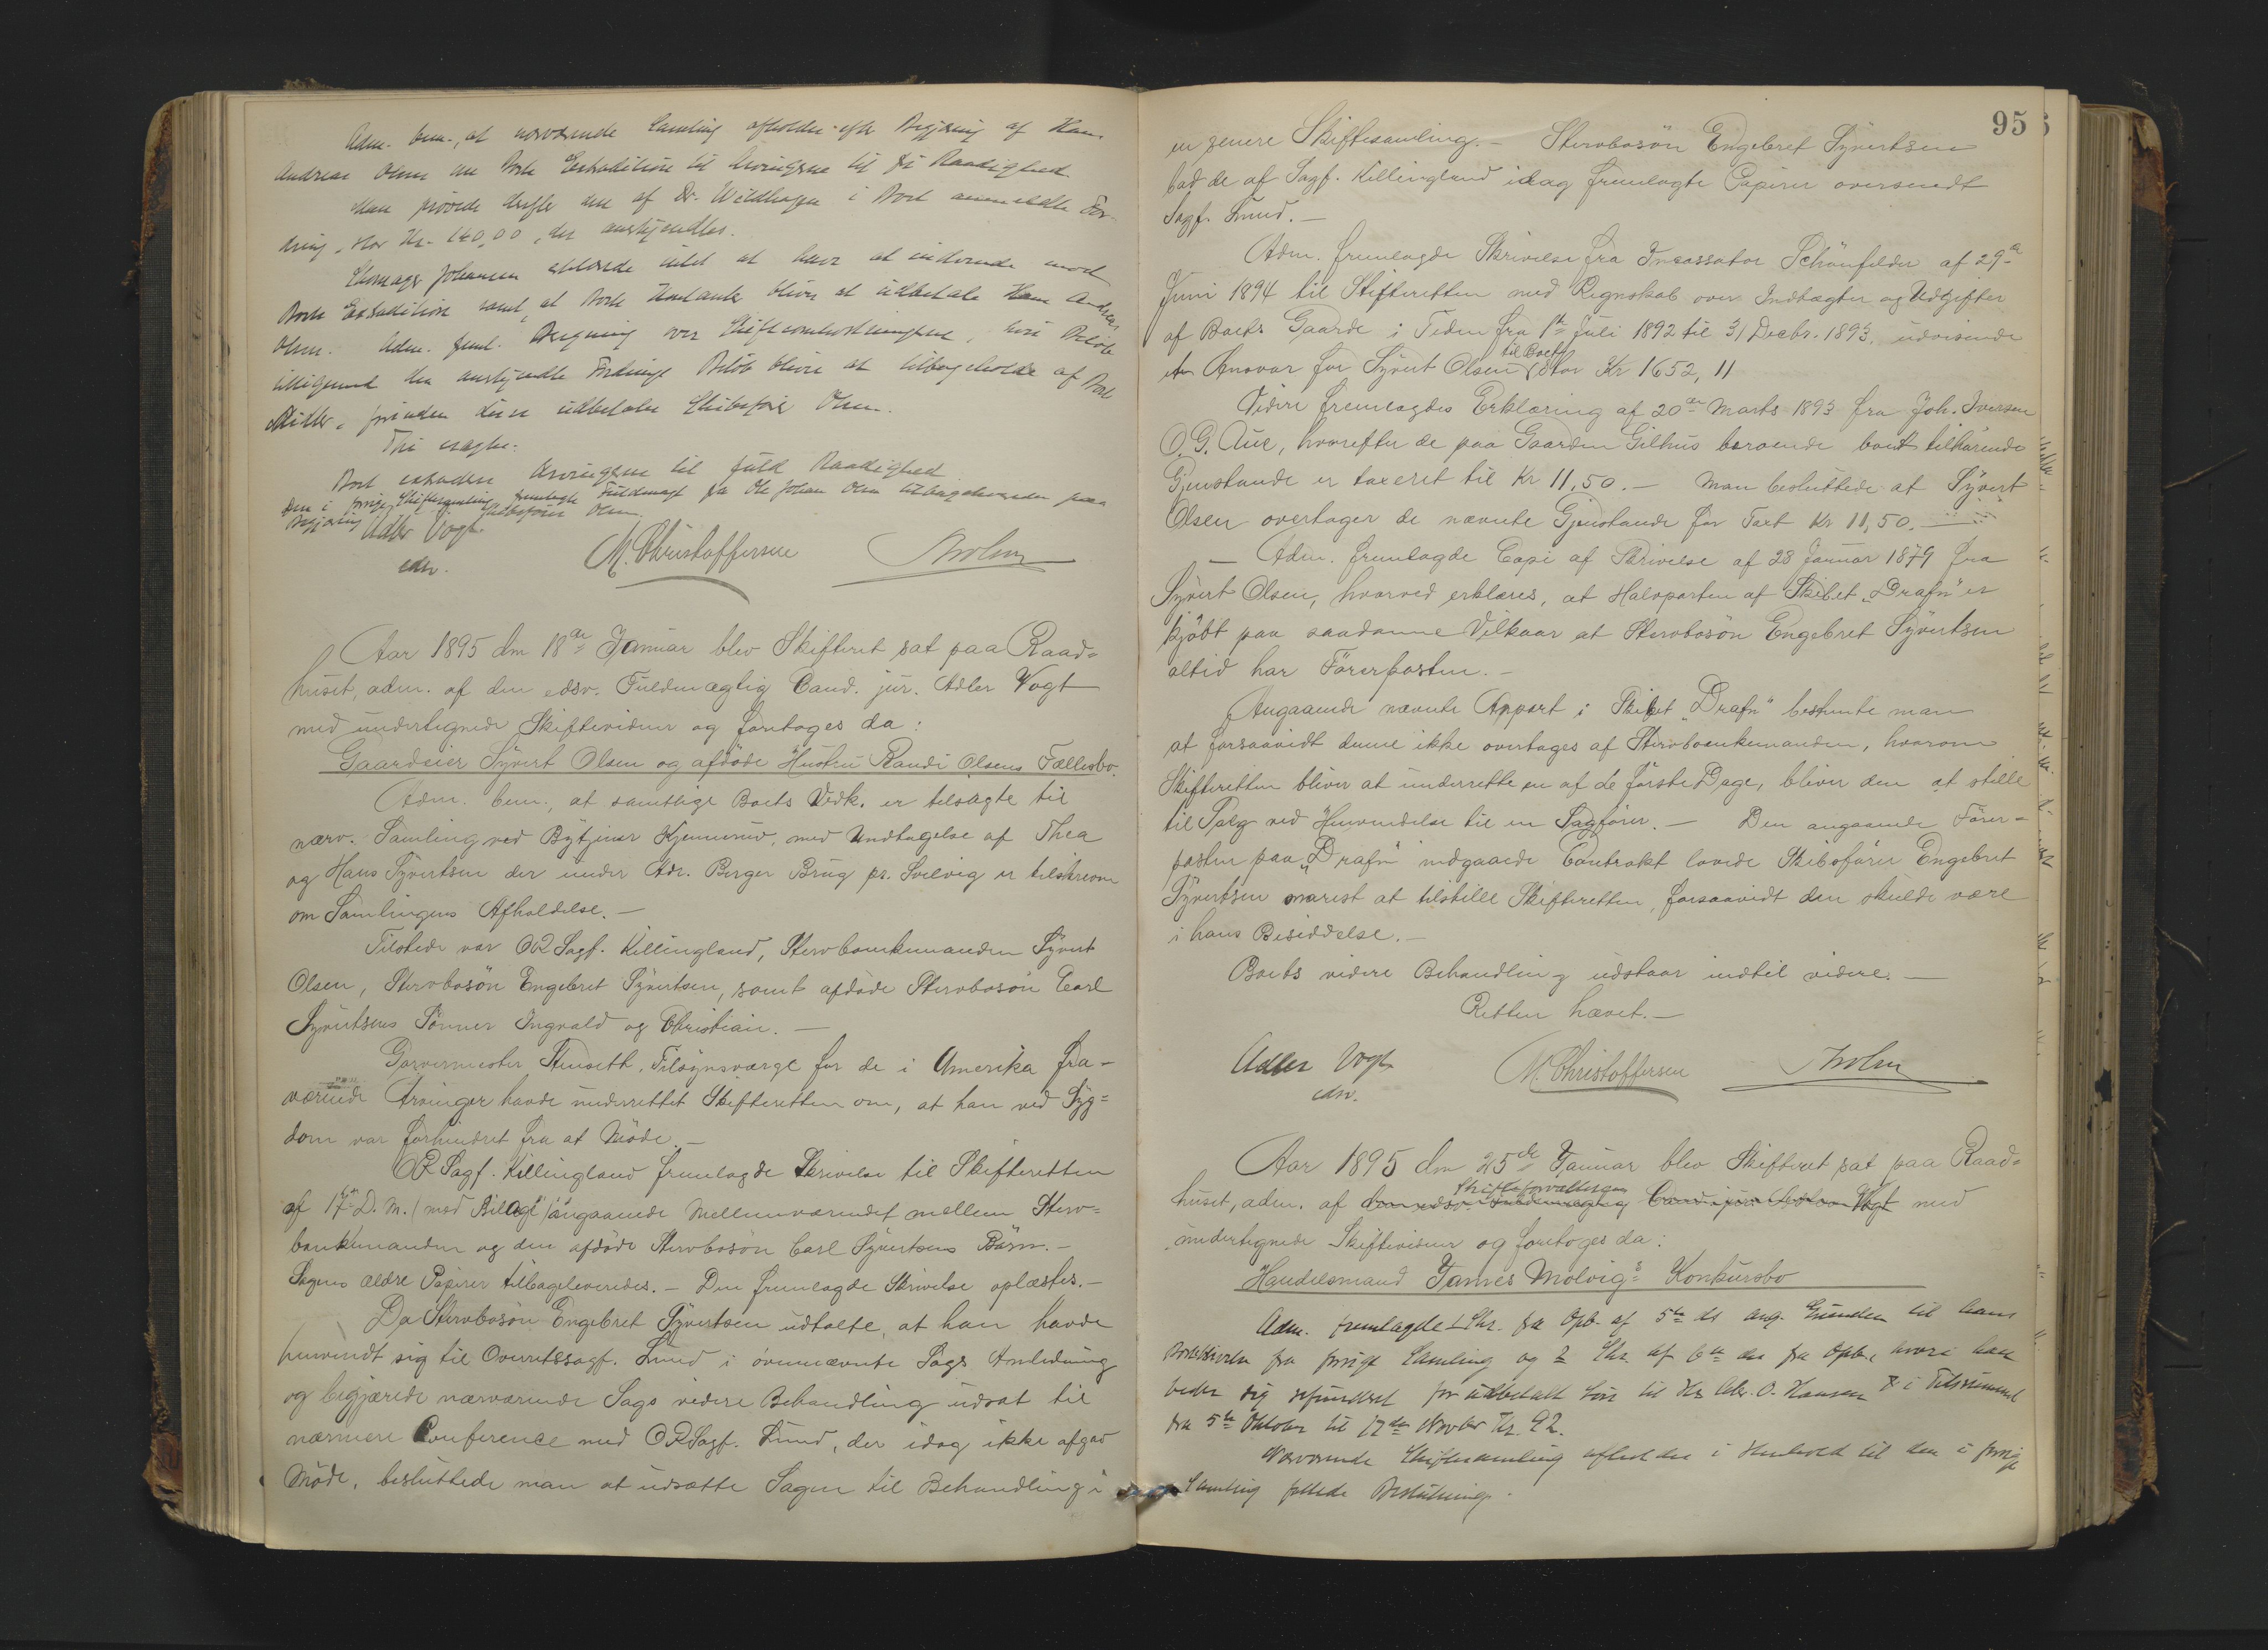 Adm. bem., at nærværende Samling afholdes efter Begjæring af Hans
Andreas Olsen om Boets Extradition til Arvingerne til fri Raadighed.
Man prøvede derefter den af Dr. Wildhagen i Boet anmeldte For-
dring, stor Kr. 140,00, der anerkjendtes.
Johansen erklærede intet at have at indvende mod
Boets Extradition samt, at Boets Kontanter bliver at udbetale Hans Andreas
Olsen. Adm. freml. Beregning over Skifteomkostningerne, hvis Beløb
tilligemed den anerkjendte Fordrings Beløb bliver at tilbageholde af Boets
Midler, forinden disse udbetales Skibsfører Olsen.
Thi eragtes:
Boet extraderes Arvingerne til fuld Raadighed.
Den i forrige Skiftesamling fremlagte Fuldmagt fra Ole Johan Olsen tilbageleveredes paa
Begjæring Skibsfører Olsen.
Adler Vogt
edsv.
M. Christoffersen
Aar 1895 den 18de Januar blev Skifteret sat paa Raad-
huset, adm. af den edsv. Fuldmægtig Cand. jur. Adler Vogt
med undertegnede Skiftevidner og foretoges da:
Gaardeier Syvert Olsen og afdøde Hustru Randi Olsens Fællesbo.
Adm. bem., at samtlige Boets Vedk. er tilsagte til
nærv. Samling ved Bytjener Kjennerud, med Undtagelse af Thea
og Hans Syvertsen der under Adr. Berger Brug pr. Svelvig er tilskrevne
om Samlingens Afholdelse.—
Tilstede var OR Sagf. Killingland, Stervboenkemanden Syvert
Olsen, Stervbosøn Engebret Syvertsen, samt afdøde Stervbosøn Carl
Syvertsens Sønner Ingvald og Christian.—
Garvermester Stenseth, Tilsynsværge for de i Amerika fra-
værende Arvinger havde underrettet Skifteretten om, at han ved Syg-
dom var forhindret fra at Møde.—
OR Sagf. Killingland fremlagde Skrivelse til Skifteretten
af 17de D. M. (med Bilage) angaaende Mellemværendet mellem Sterv-
boenkemanden og den afdøde Stervbosøn Carl Syvertsens Børn.—
Sagens ældre Papirer tilbageleveredes.— Den fremlagde Skrivelse oplæstes.—
Da Stervbosøn Engebret Syvertsen udtalte, at han havde
henvendt sig til Overretssagf. Lund i ovennævnte Sags Anledning
og begjærede nærværende Sags videre Behandling udsat til
nærmere Conference med ORSagf. Lund, der idag ikke afgav
Møde, besluttede man at udsætte Sagen til Behandling i
95
en senere Skiftesamling.— Stervbosøn Engebret Syvertsen
bad de af Sagf. Killingland idag fremlagte Papirer oversendt
Sagf. Lund.—
Adm. fremlagde Skrivelse fra Incassator Schönfelder af 29de
Juni 1894 til Skifteretten med Regnskab over Indtægter og Udgifter
af Boets Gaarde i Tiden fra 1ste Juli 1892 til 31 Decbr. 1893, udvisende
til Boet
et Ansvar for Syvert Olsen stor Kr 1652,11
Videre fremlagdes Erklæring af 20de Marts 1893 fra Joh. Iversen
O. G. Aue, hvorefter de paa Gaarden Gilhus beroende boet tilhørende
Gjenstande er taxeret til Kr 11,50.— Man besluttede at Syvert
Olsen overtager de nævnte Gjenstande for Taxt Kr 11,50.—
— Adm. fremlagde Copi af Skrivelse af 28 Januar 1879 fra
Syvert Olsen, hvorved erklæres, at Halvparten af Skibet "Drafn" er
kjøbt paa saadanne Vilkaar at Stervbosøn Engebret Syvertsen
altid har Førerposten.—
Angaaende nævnte Appart i Skibet "Drafn" bestemte man
at forsaavidt denne ikke overtages af Stervboenkemanden, hvorom
Skifteretten bliver at underrette en af de første Dage, bliver den at stille
til Salg ved Henvendelse til en Sagfører.— Den angaaende Fører-
posten paa "Drafn" indgaaede Contrakt lovede Skibsfører Engebret
Syvertsen snarest at tilstille Skifteretten, forsaavidt den skulde være
i hans Besiddelse.—
Boets videre Behandling udstaar indtil videre.—
Retten hævet.—
Adler Vogt
edsv.
M. Christoffersen
Aar 1895 den 25de Januar blev Skifteret sat paa Raad-
Skifteforvalteren
huset, adm. af den edsv. Fuldmægtig Cand. jur. Adler Vogt med
undertegnede Skiftevidner og foretoges da:
Handelsmand James Molvigs Konkursbo
Adm. fremlagde 1 Skr. fra Opb. af 5te ds ang. Grunden til hans
fra forrige Samling og 2 Skr. af 6te ds fra Opb., hvori han
beder sig refunderet for udbetalt Løn til Alex. O. Hansen i Tidsrummet
fra 5te Oktober til 17de Novbr Kr. 92.
Nærværende Skiftesamling afholdtes i Henhold til den i forrige
Samling fattede Beslutning.